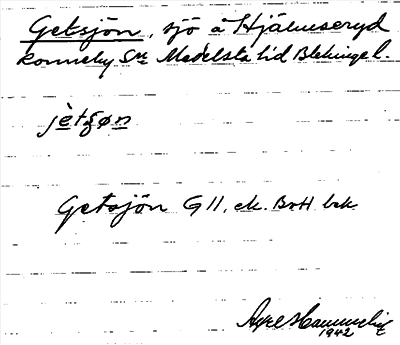 Getsjön, sjö å Hjälmseryd
Ronneby Sn Medelsta hd Blekinge l.
jètʂøn
Getsjön G 11. ek. Bott bek
Axel Hammerlid
1942